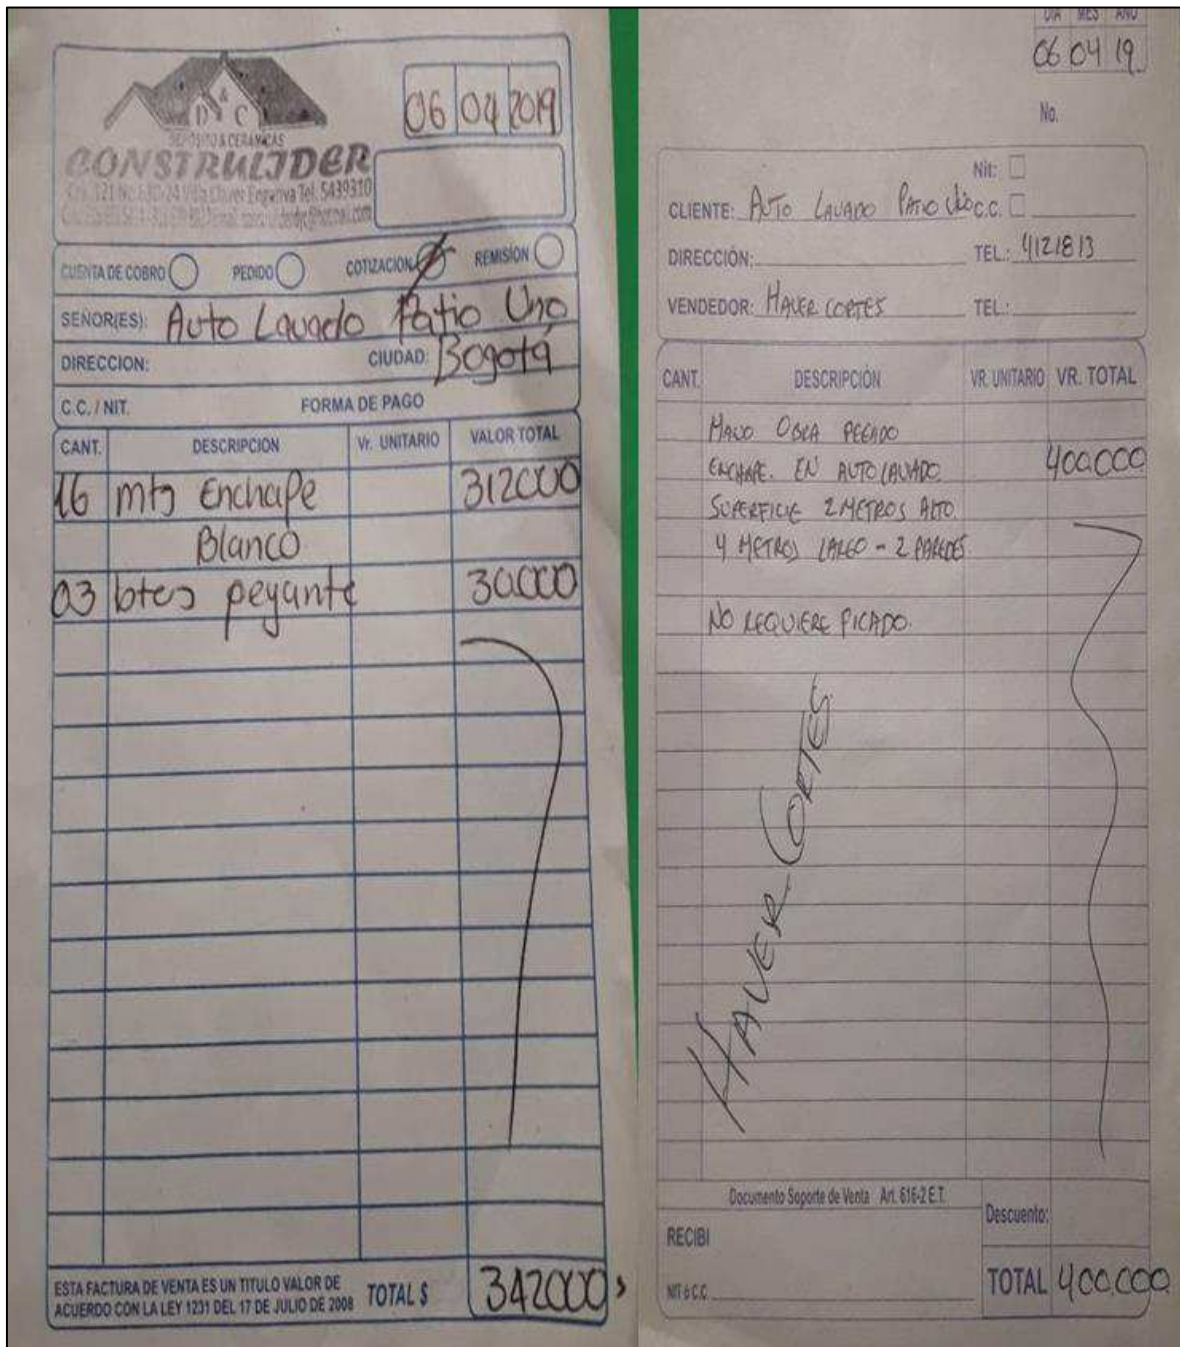 D & C
DEPOSITO & CERAMICAS
CONSTRULIDER
Tel. 5439310
06 04 2019
CUENTA DE COBRO PEDIDO COTIZACION REMISIÓN
SEÑOR(ES): Auto Lavado Patio Uno
DIRECCION: CIUDAD: Bogotá
C.C. / NIT. FORMA DE PAGO
CANT. DESCRIPCION Vr. UNITARIO VALOR TOTAL
16 mts Enchape 312000
Blanco
03 btos pegante 30.000
ESTA FACTURA DE VENTA ES UN TITULO VALOR DE
ACUERDO CON LA LEY 1231 DEL 17 DE JULIO DE 2008 TOTAL $ 342000
DIA MES AÑO
06 04 19
No.
Nit:
CLIENTE: AUTO LAVADO PATIO UNO C.C.
DIRECCIÓN: TEL.: 4121813
VENDEDOR: HAVER CORTES TEL.:
CANT. DESCRIPCIÓN VR. UNITARIO VR. TOTAL
MANO OBRA PEGADO
ENCHAPE. EN AUTOLAVADO 400.000
SUPERFICIE 2 METROS ALTO.
4 METROS LARGO - 2 PAREDES
NO REQUIERE PICADO.
HAVER CORTES
Documento Soporte de Venta Art. 616-2 E.T.
RECIBI Descuento:
NIT ó C.C. TOTAL 400.000